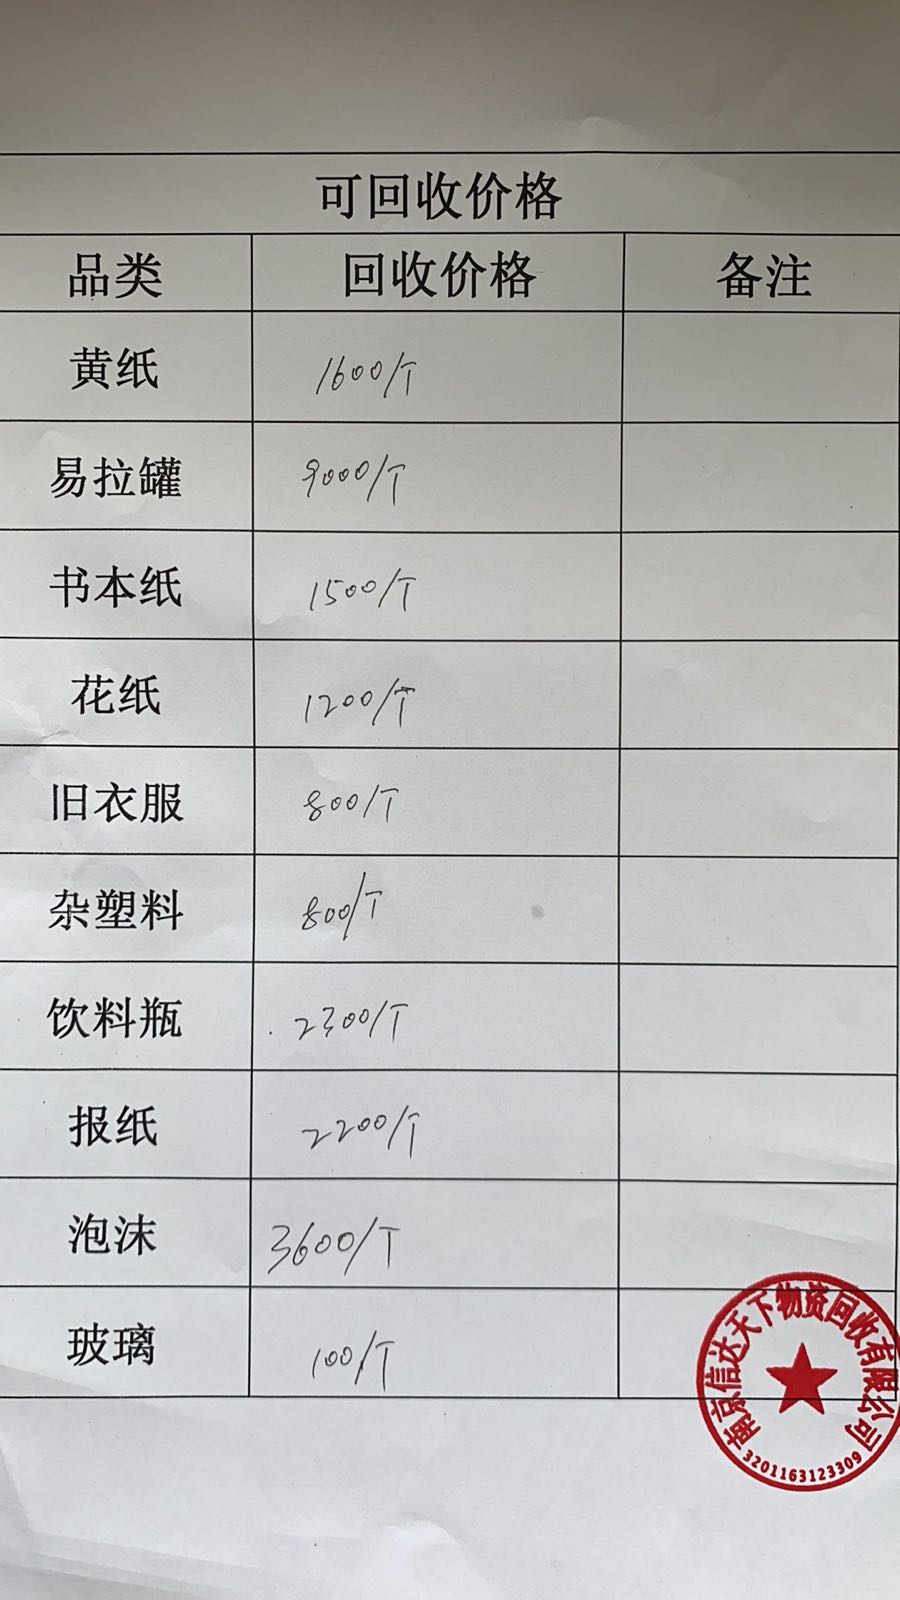 可回收价格
品类 回收价格 备注
黄纸 1600/T
易拉罐 9000/T
书本纸 1500/T
花纸 1200/T
旧衣服 800/T
杂塑料 800/T
饮料瓶 2300/T
报纸 2200/T
泡沫 3600/T
玻璃 100/T
南京信达天下物资回收有限公司
3201163123309